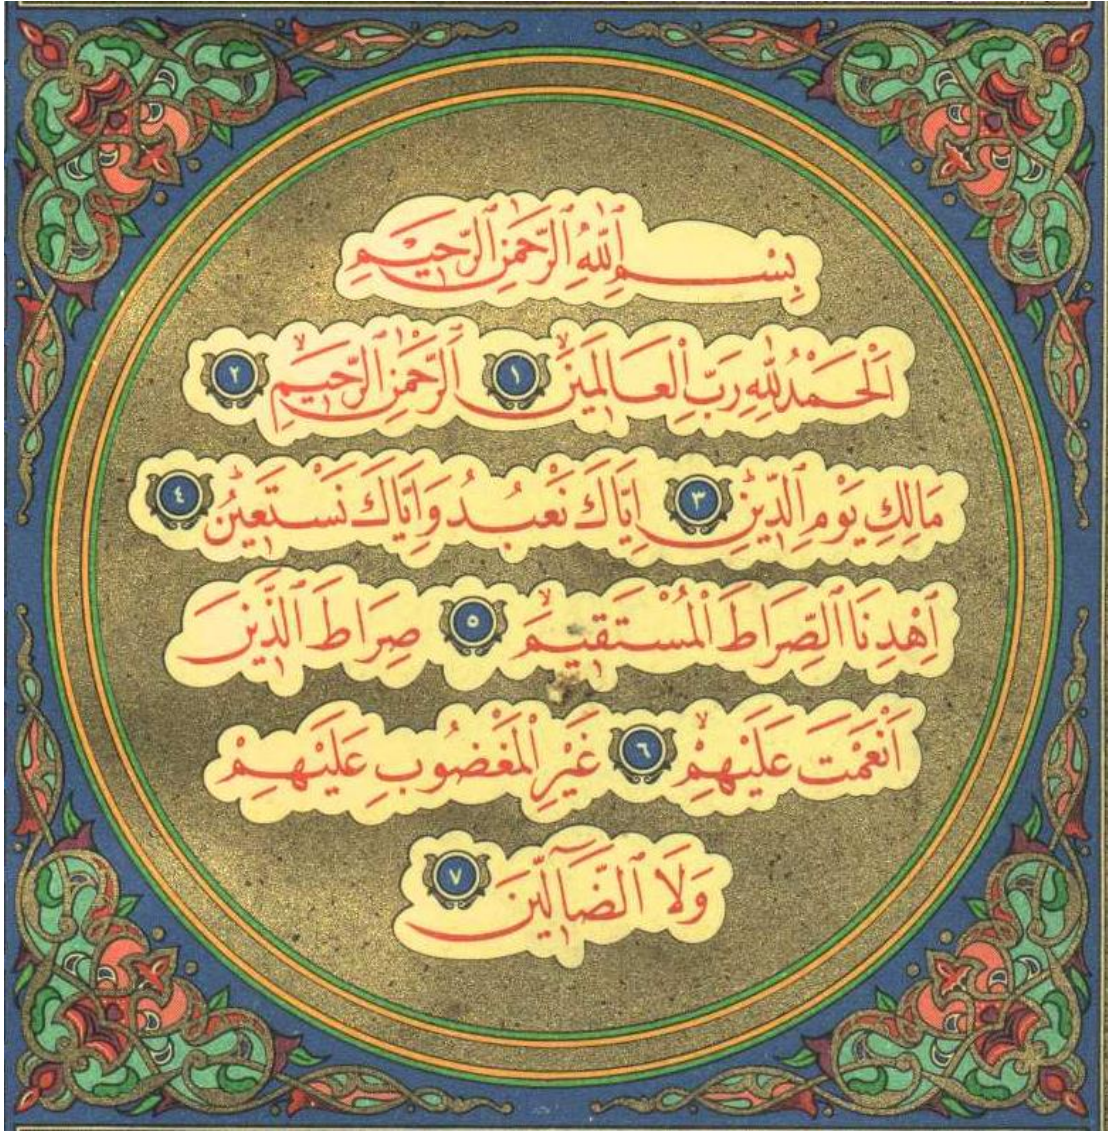 بِسْمِ ٱللّٰهِ ٱلرَّحْمٰنِ ٱلرَّحِيمِ
اَلْحَمْدُ لِلّٰهِ رَبِّ ٱلْعَالَمِينَۙ ١ اَلرَّحْمٰنِ ٱلرَّحِيمِۙ ٢
مَالِكِ يَوْمِ ٱلدِّينِۜ ٣ اِيَّاكَ نَعْبُدُ وَاِيَّاكَ نَسْتَعِينُۜ ٤
اِهْدِنَا ٱلصِّرَاطَ ٱلْمُسْتَقِيمَۙ ٥ صِرَاطَ ٱلَّذِينَ
اَنْعَمْتَ عَلَيْهِمْۙ ٦ غَيْرِ ٱلْمَغْضُوبِ عَلَيْهِمْ
وَلَا ٱلضَّٓالِّينَ ٧